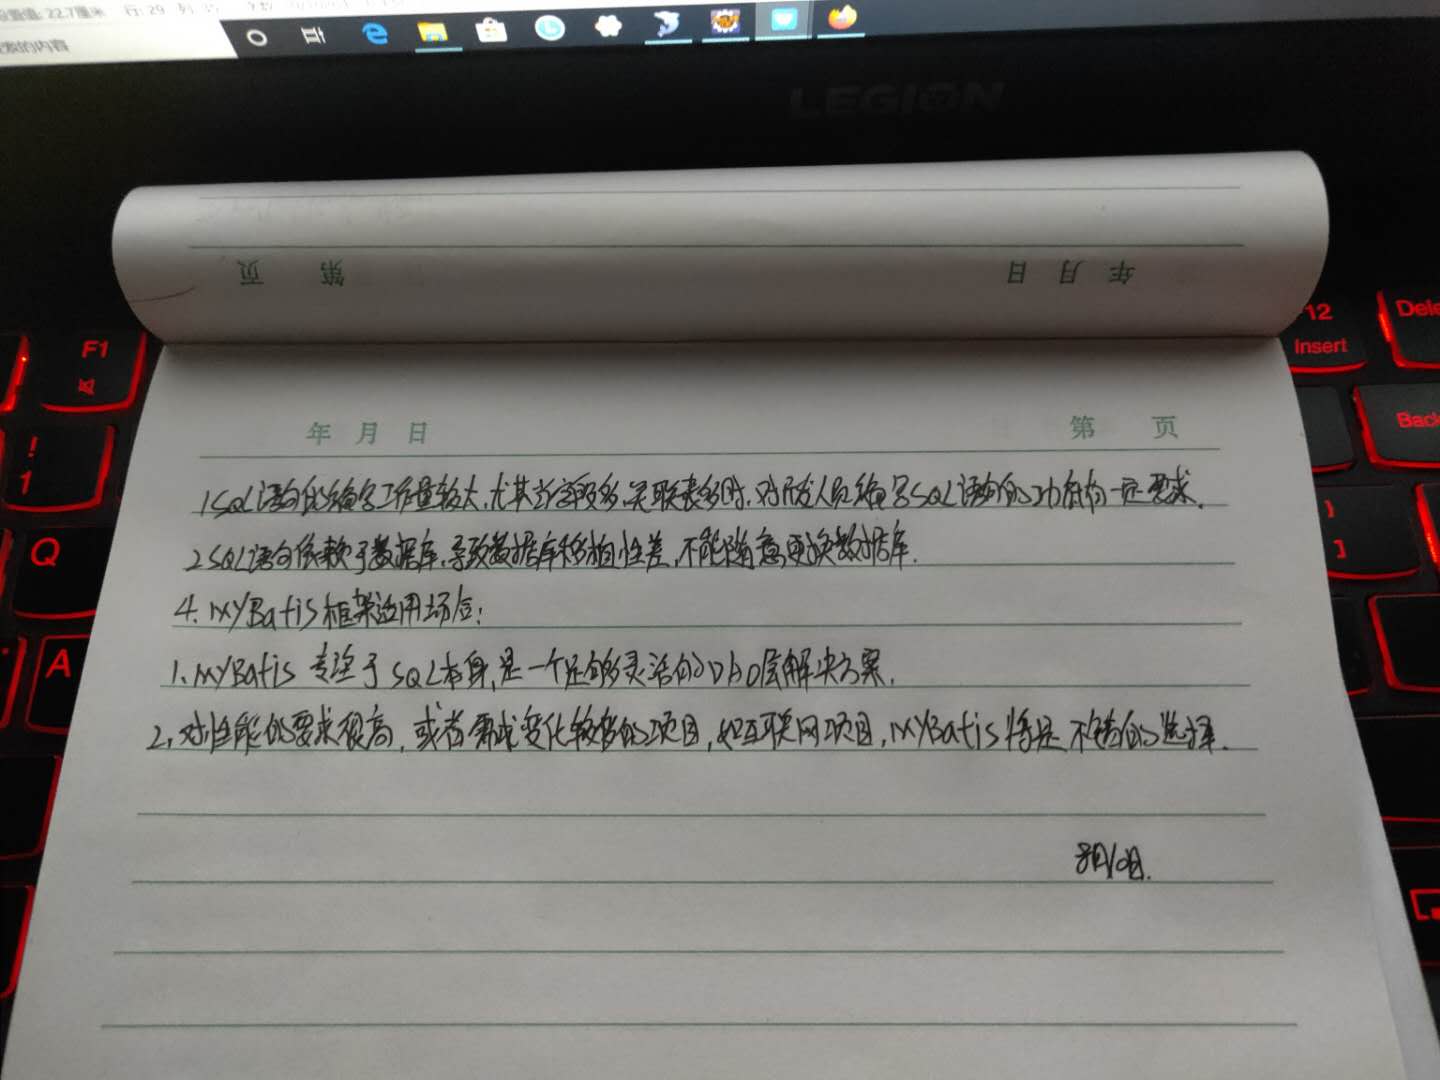 设置值: 22.7厘米 行: 29 列
索的内容
LEGION
第 页
年 月 日
F1
F12
Insert
Dele
Back
!
1
Q
A
)
]
年 月 日
第 页
1.SQL语句的编写工作量较大,尤其当字段多,关联表多时,对开发人员编写SQL语句的功底有一定要求.
2.SQL语句依赖于数据库,导致数据库移植性差,不能随意更换数据库.
4.MyBatis框架适用场合:
1.MyBatis 专注于SQL本身,是一个足够灵活的DAO层解决方案.
2.对性能的要求很高,或者需求变化较多的项目,如互联网项目,MyBatis将是不错的选择.
8月10日.